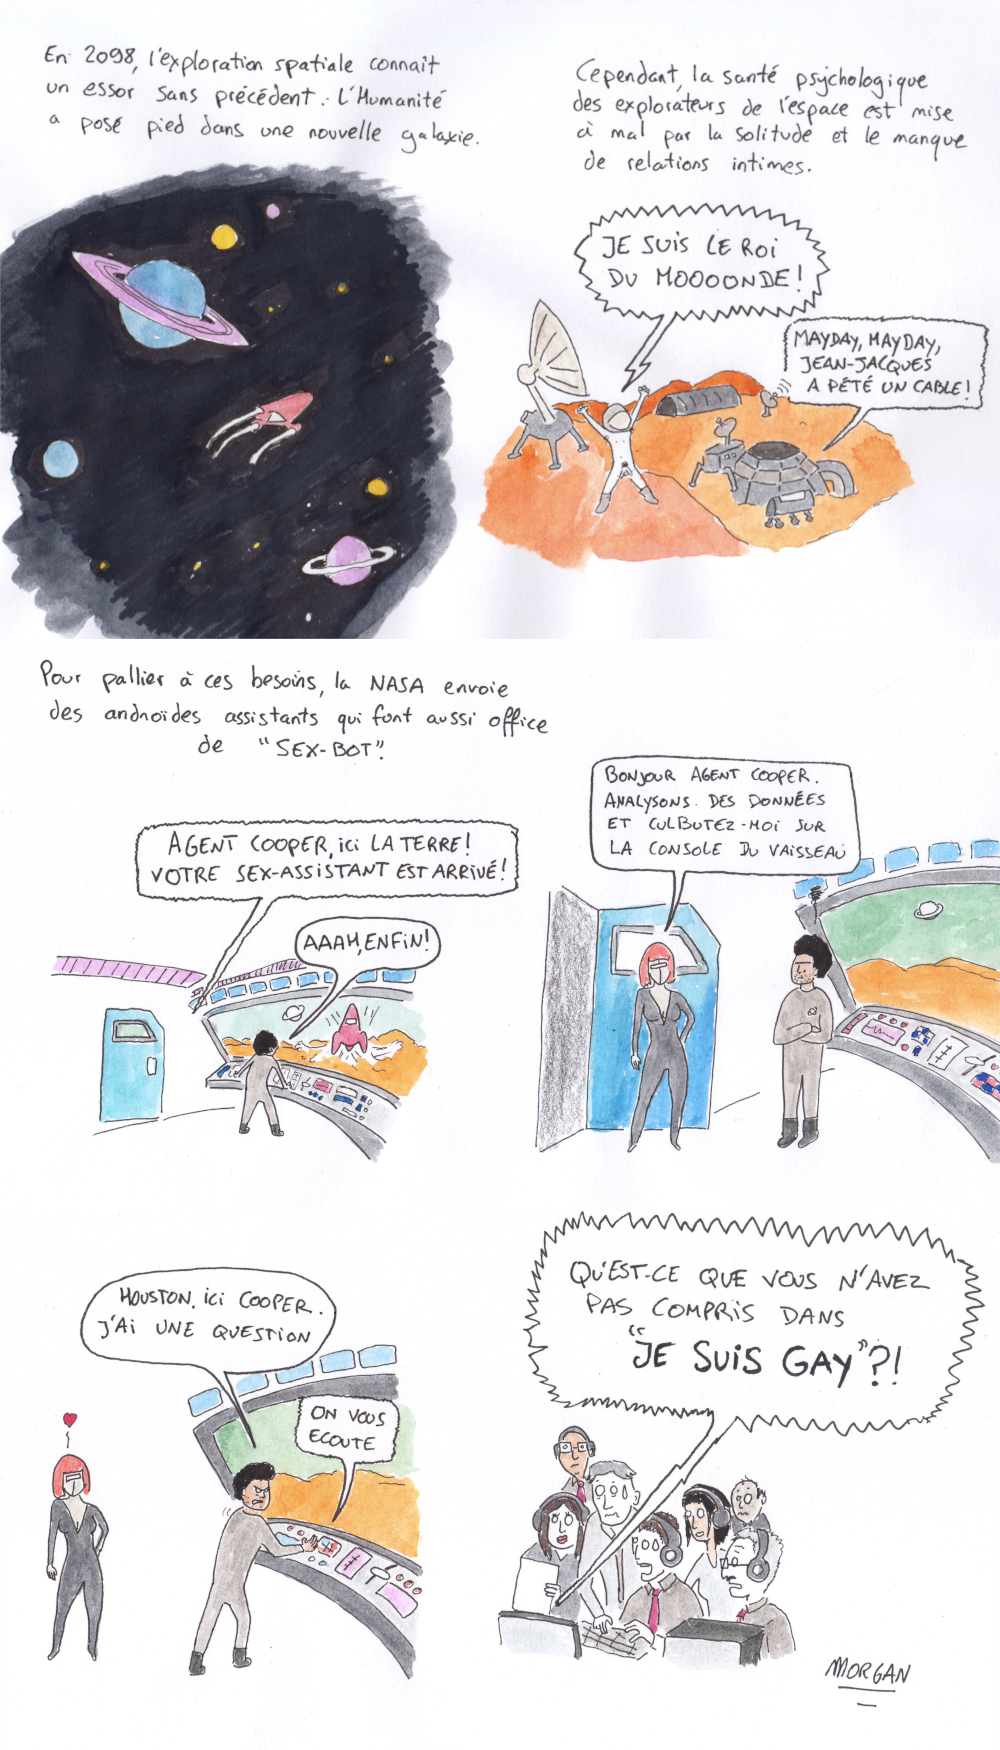 En 2098, l'exploration spatiale connaît
un essor sans précédent. L'Humanité
a posé pied dans une nouvelle galaxie.
Cependant, la santé psychologique
des explorateurs de l'espace est mise
à mal par la solitude et le manque
de relations intimes.
JE SUIS LE ROI
DU MOOOONDE !
MAYDAY, MAYDAY,
JEAN-JACQUES
A PÉTÉ UN CABLE !
Pour pallier à ces besoins, la NASA envoie
des androïdes assistants qui font aussi office
de "SEX-BOT".
AGENT COOPER, ici LA TERRE !
VOTRE SEX-ASSISTANT EST ARRIVÉ !
AAAH, ENFIN !
BONJOUR AGENT COOPER.
ANALYSONS DES DONNÉES
ET CULBUTEZ-MOI SUR
LA CONSOLE DU VAISSEAU
HOUSTON, ici COOPER.
J'AI UNE QUESTION
ON VOUS
ECOUTE
QU'EST-CE QUE VOUS N'AVEZ
PAS COMPRIS DANS
"JE SUIS GAY" ?!
MORGAN